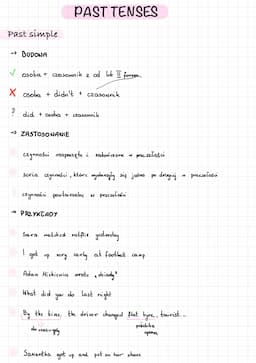 PAST TENSES
Past simple
→ BUDOWA
✓ osoba + czasownik z ed lub II formą
X osoba + didn't + czasownik
? did + osoba + czasownik
→ ZASTOSOWANIE
czynności rozpoczęte i zakończone w przeszłości
seria czynności, które wydarzyły się jedna po drugiej w przeszłości
czynności powtarzalne w przeszłości
→ PRZYKŁADY
Sara watched netflix yesterday
I got up very early at football camp
Adam Mickiewicz wrote „Dziady"
What did you do last night
By the time, the driver changed flat tyre, tourist...
Samantha got up and put on her shoes